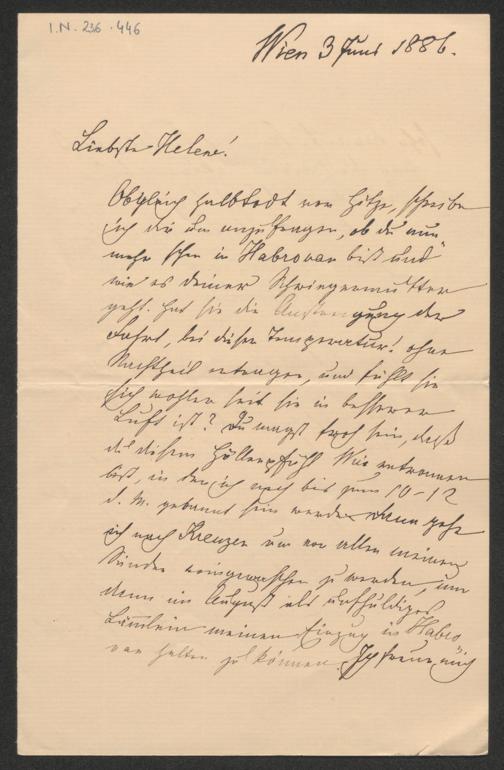 I.N. 236.446
Wien 3 Juni 1886.
Liebste Helene!
Obgleich halbtodt von Hitze, schreibe
ich dir um anzufragen, ob du nun
mehr schon in Habrovan bist und
wie es deiner Schwiegermutter
geht. Hat sie die Anstrengung der
Fahrt, bei dieser Temperatur! ohne
Nachtheil ertragen, und fühlt sie
sich wohler seit sie in besserer
Luft ist? Du magst froh sein, daß
du diesem Höllenpfuhl Wien entronnen
bist, in den ich noch bis zum 10-12
d. M. gebannt sein werde. Dann gehe
ich nach Kreuzen um von allen meinen
Sünden reingewaschen zu werden, um
dann im August als unschuldiges
Lämlein meinen Einzug in Habro
van halten zu können. Ich freue mich